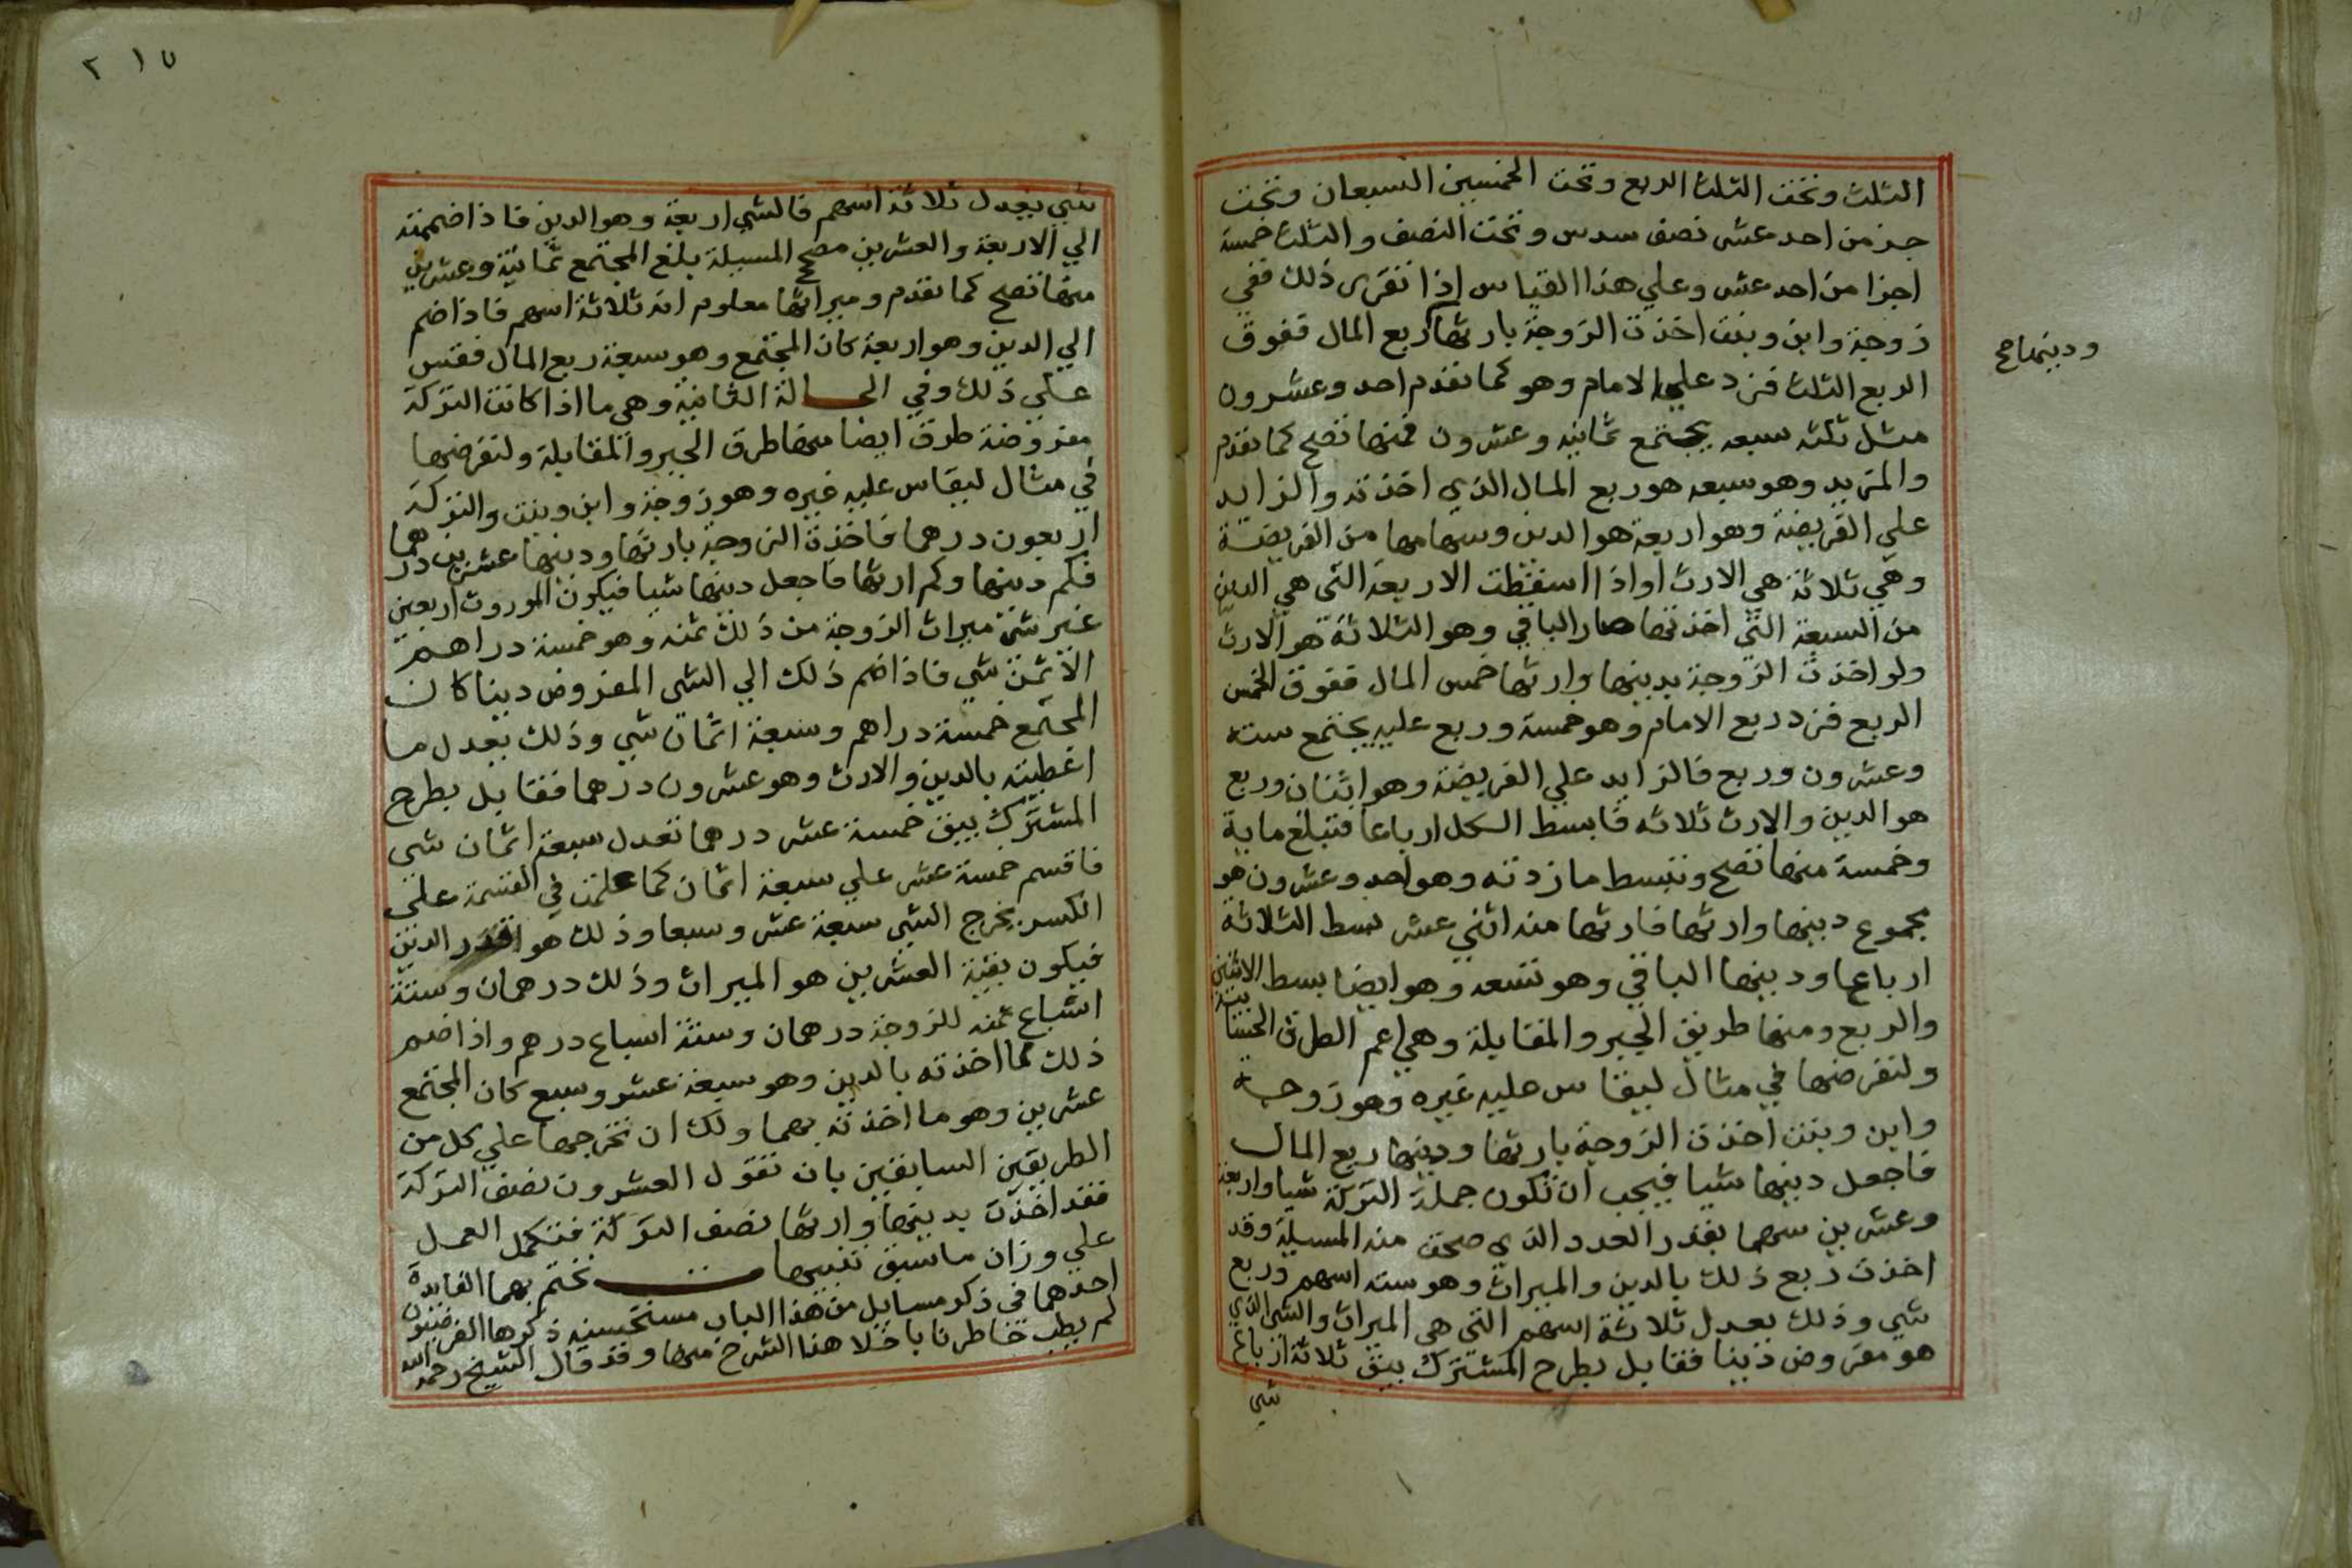 الثلث وتحت الثلث الربع وتحت الخمسين السبعان وتحت
جزء من احد عشر نصف سدس وتحت النصف والثلث خمسة
اجزا من احد عشر وعلي هذا القياس إذا تقرر ذلك ففي
زوجة وابن وبنت اخذت الزوجة بارثها ربع المال ففوق
ودينها صح
الربع الثلث فزد علي الامام وهو كما تقدم احد وعشرون
مثل ثلثه سبعه يجتمع ثمانيه وعشرون فمنها تصح كما تقدم
والمزيد وهو سبعه هو ربع المال الذي اخذته والزايد
علي الفريضة وهو اربعة هو الدين وسهامها من الفريضة
وهي ثلاثة هي الارث او اذا اسقطت الاربعة التي هي الدين
من السبعة التي اخذتها صار الباقي وهو الثلاثة هو الارث
ولو اخذت الزوجة بدينها وارثها خمس المال ففوق الخمس
الربع فزد ربع الامام وهو خمسة وربع عليه يجتمع ستة
وعشرون وربع فالزايد علي الفريضة وهو اثنان وربع
هو الدين والارث ثلاثه فابسط الكل ارباعا فتبلغ ماية
وخمسة منها تصح وتبسط ما زدته وهو احد وعشرون هو
مجموع دينها وارثها فارثها منه اثني عشر بسط الثلاثة
ارباعا ودينها الباقي وهو تسعه وهو ايضا بسط الاثنين
والربع ومنها طريق الجبر والمقابلة وهي اعم الطرق الحسابية
ولتفرضها في مثال ليقاس عليه غيره وهو زوجة
وابن وبنت اخذت الزوجة بارثها ودينها ربع المال
فاجعل دينها شيا فيجب ان تكون جملة التركة شيا واربعة
وعشرين سهما بقدر العدد الذي صحت منه المسيلة وقد
اخذت ربع ذلك بالدين والميراث وهو سته اسهم وربع
شي وذلك يعدل ثلاثة اسهم التي هي الميراث والشي الذي
هو مفروض دينا فقابل بطرح المشترك يبق ثلاثة ارباع
شي
٢١٥
شي يعدل ثلاثة اسهم فالشي اربعة وهو الدين فاذا ضممته
الي الاربعة والعشرين مصح المسيلة بلغ المجتمع ثمانية وعشرين
منها تصح كما تقدم وميراثها معلوم انه ثلاثة اسهم فاذا ضم
الي الدين وهو اربعة كان المجتمع وهو سبعة ربع المال فقس
علي ذلك وفي الحالة الثانية وهي ما اذا كانت التركة
مفروضة طرق ايضا منها طرق الجبر والمقابلة ولتفرضها
في مثال ليقاس عليه غيره وهو زوجة وابن وبنت والتركة
اربعون درهما فاخذت الزوجة بارثها ودينها عشرين درهما
فكم دينها وكم ارثها فاجعل دينها شيا فيكون الموروث اربعين
غير شي ميراث الزوجة من ذلك ثمنه وهو خمسة دراهم
الا ثمن شي فاذا ضم ذلك الي الشي المفروض دينا كان
المجتمع خمسة دراهم وسبعة اثمان شي وذلك يعدل ما
اعطيته بالدين والارث وهو عشرون درهما فقابل بطرح
المشترك يبق خمسة عشر درهما تعدل سبعة اثمان شي
فاقسم خمسة عشر علي سبعة اثمان كما علمت في القسمة علي
الكسر يخرج الشي سبعة عشر وسبعا وذلك هو قدر الدين
فيكون بقية العشرين هو الميراث وذلك درهمان وستة
اسباع ثمنه للزوجة درهمان وستة اسباع درهم واذا ضم
ذلك لما اخذته بالدين وهو سبعة عشر وسبع كان المجتمع
عشرين وهو ما اخذته بهما ولك ان تخرجها علي كل من
الطريقين السابقين بان تقول العشرون نصف التركة
فقد اخذت بدينها وارثها نصف التركة فتكمل العمل
علي وزان ما سبق تنبيها ت نختم بهما الفايدة
احدهما في ذكر مسايل من هذا الباب مستحسنه ذكرها الفرضيون
لم يطب خاطرنا باخلا هذا الشرح منها وقد قال الشيخ رحمه الله